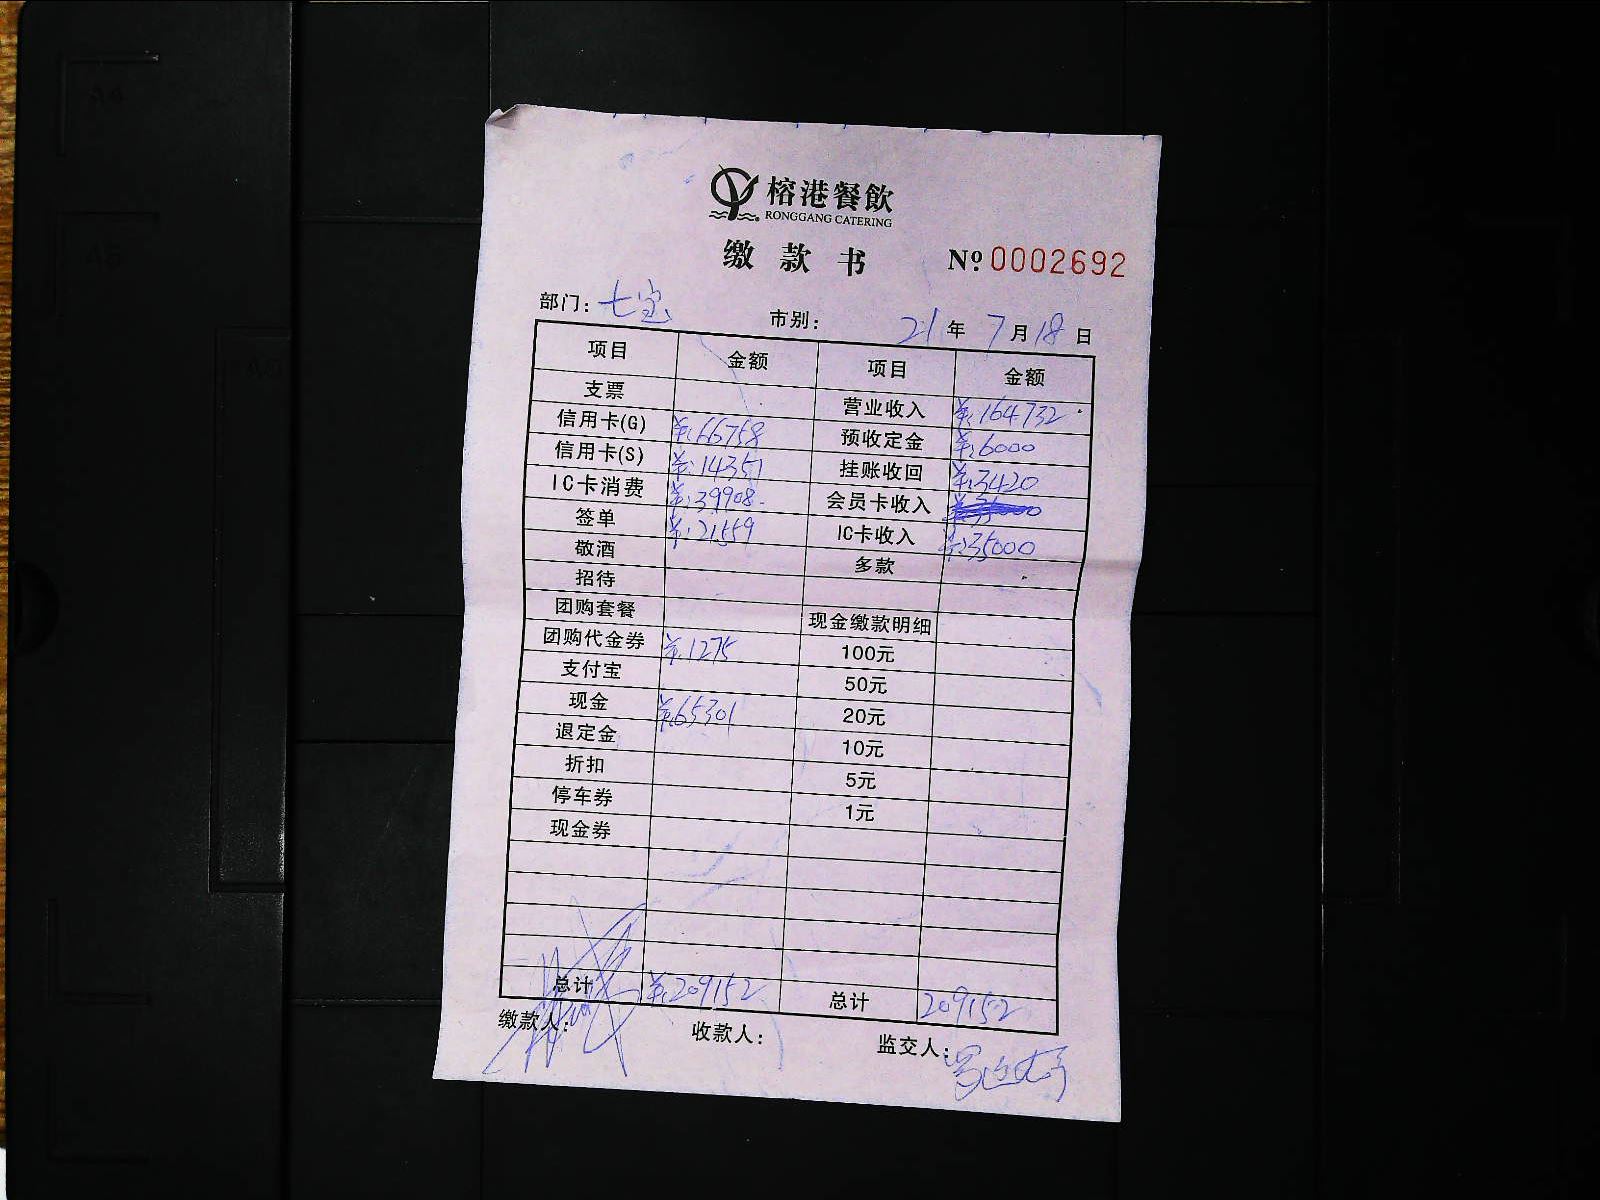 榕港餐飲
RONGGANG CATERING
缴款书 Nº 0002692
部门: 七宝 市别: 21年7月18日
项目 金额 项目 金额
支票 营业收入 ¥:164732
信用卡(G) ¥:66758 预收定金 ¥:6000
信用卡(S) ¥:14351 挂账收回 ¥:3420
IC卡消费 ¥:39908 会员卡收入
签单 ¥:21559 IC卡收入 ¥:35000
敬酒 多款
招待
团购套餐 现金缴款明细
团购代金券 ¥:1275 100元
支付宝 50元
现金 ¥:65301 20元
退定金 10元
折扣 5元
停车券 1元
现金券
总计 ¥:209152 总计 209152
缴款人: 收款人: 监交人: